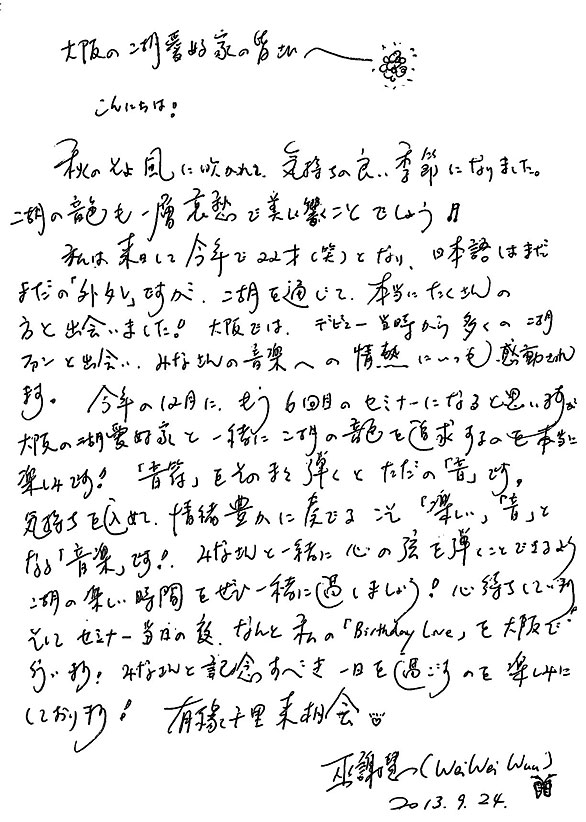 大阪の二胡愛好家の皆さん
こんにちは!
秋のそよ風に吹かれて、気持ちの良い季節になりました。
二胡の音色も一層哀愁で美しく響くことでしょう
私は来日して今年で22才(笑)となり、日本語はまだ
まだの「外タレ」ですが、二胡を通じて、本当にたくさんの
方と出会いました! 大阪では、デビュー当時から多くの二胡
ファンと出会い、みなさんの音楽への情熱にいつも感動され
ます。 今年の12月に、もう6回目のセミナーになると思いますが
大阪の二胡愛好家と一緒に二胡の音色を追求するのを本当に
楽しみです! 「音符」をそのまま弾くとただの「音」です。
気持ちを込めて、情緒豊かに奏でるこそ「楽しい」「音」と
なる「音楽」です!. みなさんと一緒に心の弦を弾くことできるよう
二胡の楽しい時間をぜひ一緒に過しましょう! 心待ちしています
そして セミナー当日の夜、なんと私の「Birthday Live」を大阪で
行います! みなさんと記念すべき一日を過ごすのを楽しみに
しております! 有縁千里来相会
巫謝慧 (WeiWei Wuu)
2013.9.24.